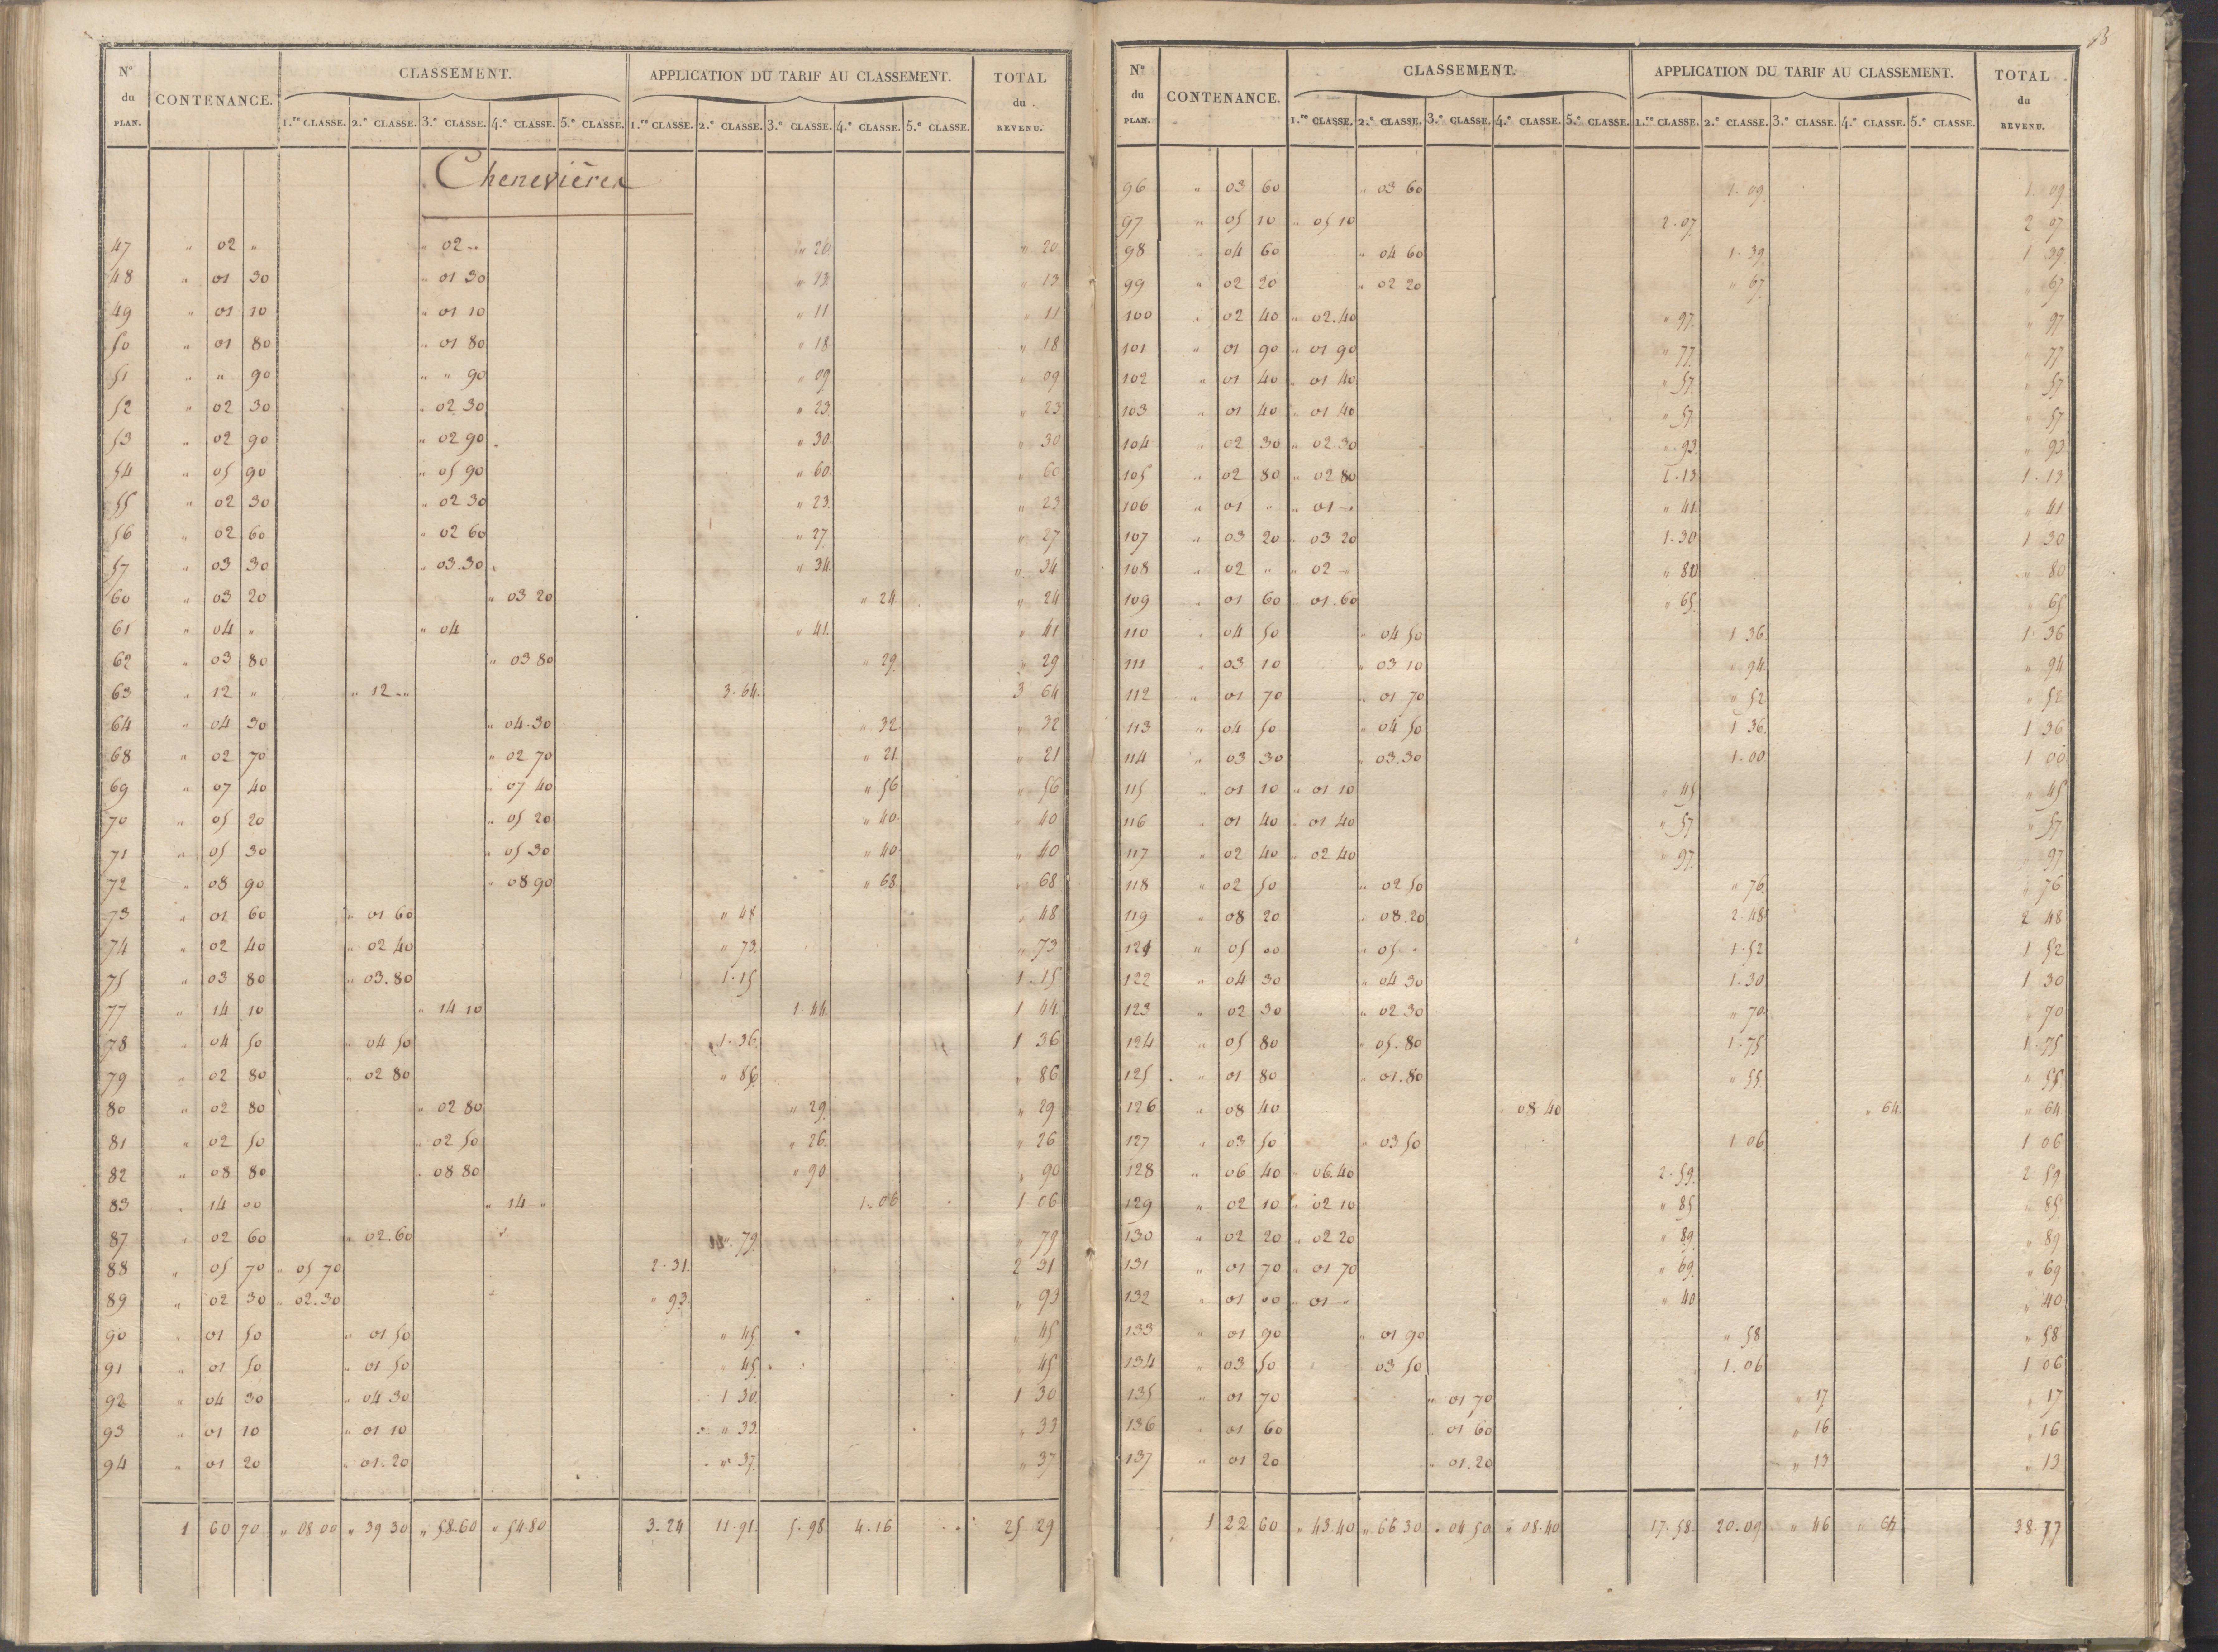 N.° du PLAN. CONTENANCE. CLASSEMENT. APPLICATION DU TARIF AU CLASSEMENT. TOTAL du REVENU.
1.re CLASSE. 2.e CLASSE. 3.e CLASSE. 4.e CLASSE. 5.e CLASSE. 1.re CLASSE. 2.e CLASSE. 3.e CLASSE. 4.e CLASSE. 5.e CLASSE.
Chenevières
47 " 02 " " 02 " " 20 " 20
48 " 01 30 " 01 30 " 13 " 13
49 " 01 10 " 01 10 " 11 " 11
50 " 01 80 " 01 80 " 18 " 18
51 " " 90 " " 90 " 09 " 09
52 " 02 30 " 02 30 " 23 " 23
53 " 02 90 " 02 90 " 30 " 30
54 " 05 90 " 05 90 " 60 " 60
55 " 02 30 " 02 30 " 23 " 23
56 " 02 60 " 02 60 " 27 " 27
57 " 03 30 " 03.30 " 34 " 34
60 " 03 20 " 03 20 " 24 " 24
61 " 04 " " 04 " 41 " 41
62 " 03 80 " 03 80 " 29 " 29
63 " 12 " " 12 " 3.64 3 64
64 " 04 30 " 04.30 " 32 " 32
68 " 02 70 " 02 70 " 21 " 21
69 " 07 40 " 07 40 " 56 " 56
70 " 05 20 " 05 20 " 40 " 40
71 " 05 30 " 05 30 " 40 " 40
72 " 08 90 " 08 90 " 68 " 68
73 " 01 60 " 01 60 " 48 " 48
74 " 02 40 " 02 40 " 73 " 73
75 " 03 80 " 03.80 1.15 1.15
77 " 14 10 " 14 10 1.44 1 44
78 " 04 50 " 04 50 1.36 1 36
79 " 02 80 " 02 80 " 86 " 86
80 " 02 80 " 02 80 " 29 " 29
81 " 02 50 " 02 50 " 26 " 26
82 " 08 80 " 08 80 " 90 " 90
83 " 14 00 " 14 " 1.06 1.06
87 " 02 60 " 02.60 " 79 " 79
88 " 05 70 " 05 70 2.31 2 31
89 " 02 30 " 02.30 " 93 " 93
90 " 01 50 " 01 50 " 45 " 45
91 " 01 50 " 01 50 " 45 " 45
92 " 04 30 " 04 30 1 30 1 30
93 " 01 10 " 01 10 " 33 " 33
94 " 01 20 " 01.20 " 37 " 37
1 60 70 " 08 00 " 39 30 " 58.60 " 54.80 3.24 11.91 5.98 4.16 25 29
N.° du PLAN. CONTENANCE. CLASSEMENT. APPLICATION DU TARIF AU CLASSEMENT. TOTAL du REVENU.
1.re CLASSE. 2.e CLASSE. 3.e CLASSE. 4.e CLASSE. 5.e CLASSE. 1.re CLASSE. 2.e CLASSE. 3.e CLASSE. 4.e CLASSE. 5.e CLASSE.
96 " 03 60 " 03 60 1.09 1.09
97 " 05 10 " 05 10 2.07 2 07
98 " 04 60 " 04 60 1.39 1 39
99 " 02 20 " 02 20 " 67 " 67
100 " 02 40 " 02.40 " 97 " 97
101 " 01 90 " 01 90 " 77 " 77
102 " 01 40 " 01 40 " 57 " 57
103 " 01 40 " 01 40 " 57 " 57
104 " 02 30 " 02.30 " 93 " 93
105 " 02 80 " 02 80 1.13 1.13
106 " 01 " " 01 " " 41 " 41
107 " 03 20 " 03 20 1.30 1 30
108 " 02 " " 02 " " 80 " 80
109 " 01 60 " 01.60 " 65 " 65
110 " 04 50 " 04 50 1 36 1.36
111 " 03 10 " 03 10 " 94 " 94
112 " 01 70 " 01 70 " 52 " 52
113 " 04 50 " 04 50 1 36 1 36
114 " 03 30 " 03.30 1.00 1 00
115 " 01 10 " 01 10 " 45 " 45
116 " 01 40 " 01 40 " 57 " 57
117 " 02 40 " 02 40 " 97 " 97
118 " 02 50 " 02 50 " 76 " 76
119 " 08 20 " 08.20 2.48 2 48
121 " 05 00 " 05 " 1.52 1 52
122 " 04 30 " 04 30 1.30 1 30
123 " 02 30 " 02 30 " 70 " 70
124 " 05 80 " 05.80 1.75 1.75
125 " 01 80 " 01.80 " 55 " 55
126 " 08 40 " 08 40 " 64 " 64
127 " 03 50 " 03 50 1 06 1 06
128 " 06 40 " 06.40 2.59 2 59
129 " 02 10 " 02 10 " 85 " 85
130 " 02 20 " 02 20 " 89 " 89
131 " 01 70 " 01 70 " 69 " 69
132 " 01 00 " 01 " " 40 " 40
133 " 01 90 " 01 90 " 58 " 58
134 " 03 50 " 03 50 1.06 1 06
135 " 01 70 " 01 70 " 17 " 17
136 " 01 60 " 01 60 " 16 " 16
137 " 01 20 " 01.20 " 13 " 13
1 22 60 " 43.40 " 66 30 " 04 50 " 08.40 17.58 20.09 " 46 " 64 38.77